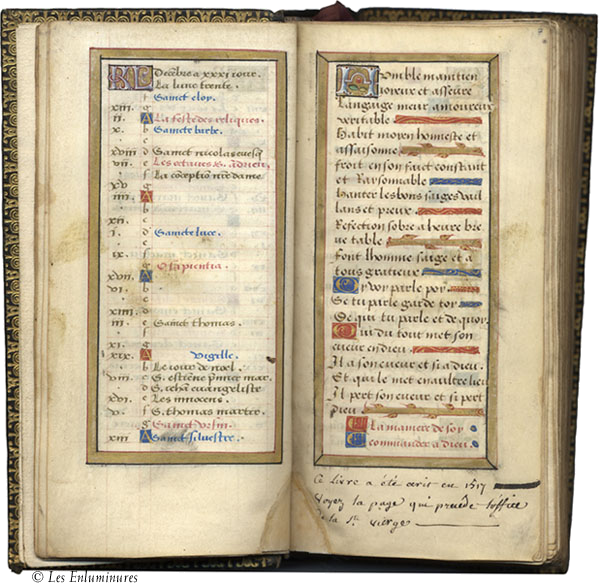 KL Decēbre a xxxi iour.
La lune trente.
f Sainct eloy.
xiii. g
ii. A La feste des reliques.
x. b Saincte barbe.
c
xviii d Sainct nicolas euesq
vii. e Les octaues s. Adrien.
f La cōceptiō nre dame
xv g
iiii. A
b
xii. c
i. d Saincte luce.
e
ix. f
g O sapientia.
xvii. A
vi. b
c
xiiii. d
iii. e Sainct thomas.
f
xi. g
xix. A Vigille.
b Le iour de noel.
viii. c S. estiene prince mar.
d S. iehan euangeliste
xvi. e Les innocens.
v. f S. thomas martre.
g Sainct Vrsin.
xiii A Sainct siluestre.
Humble maintien
ioyeux et asseure
Langaige meur amoureux
veritable
Habit moyen honneste et
assaisonne
froit en son faict constant
et Raysonnable
Hanter les bons saiges vail
lans et preux.
Refection sobre a heure brie
ue table
font lhomme saige et a
tous gratieux
Oy voy parle poy.
Se tu parle garde toy
De qui tu parle et de quoy.
Qui du tout met son
cueur en dieu.
Il a son cueur et si a dieu.
Et qui le met en aultre lieu
Il pert son cueur et si pert
Dieu.
La maniere de soy
commander a dieu
Ce livre a été écrit en 1517
voyez la page qui précède l'office
de la Ste vierge
© Les Enluminures